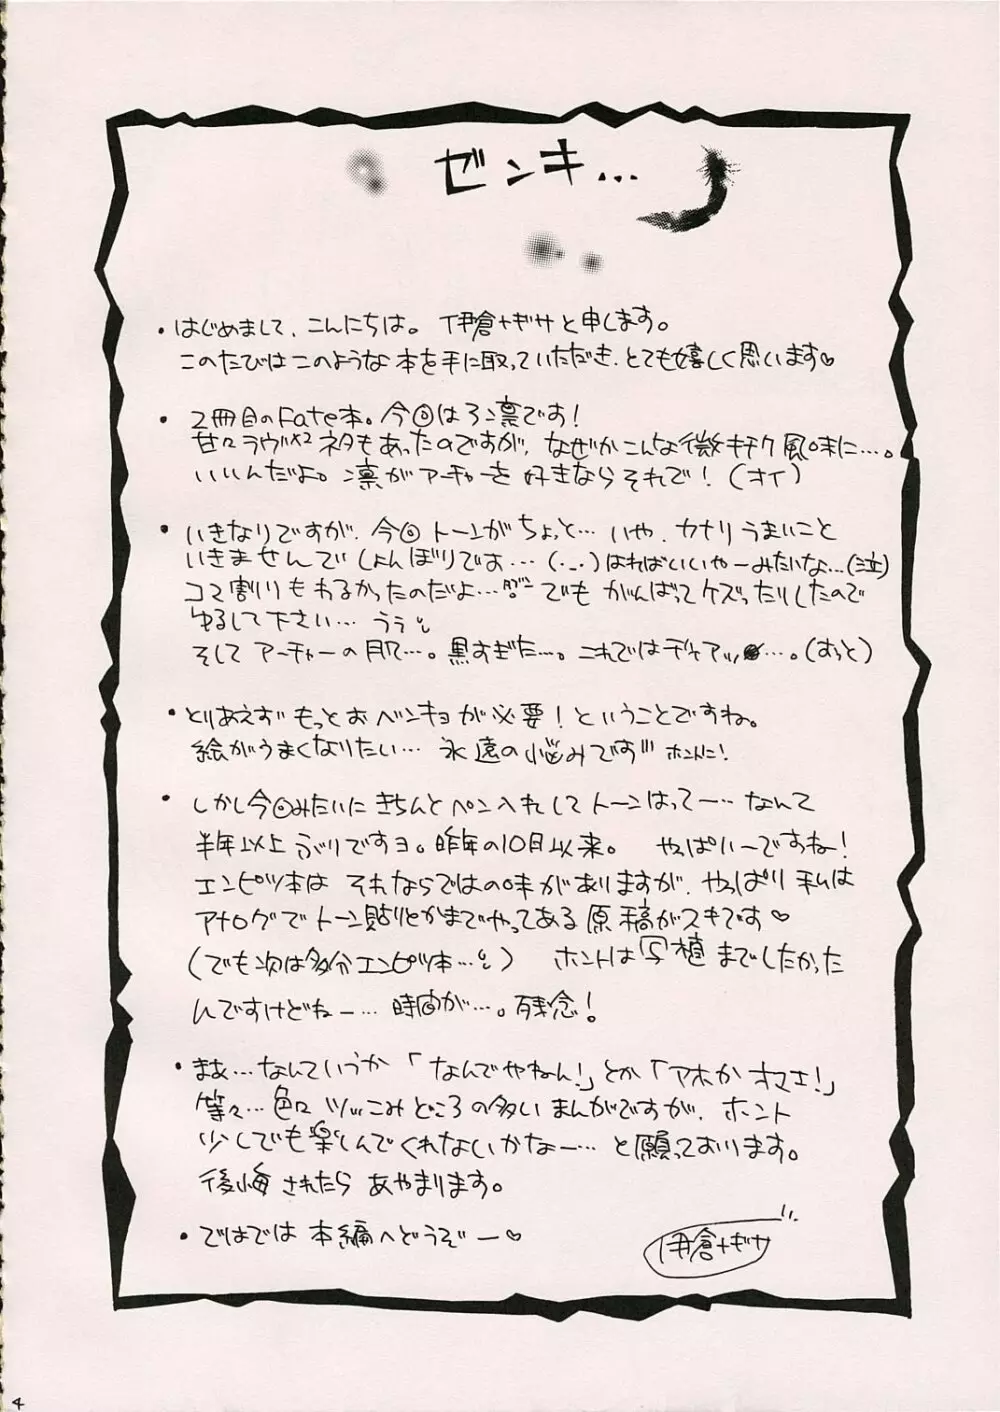 ゼンキ...
・はじめまして、こんにちは。伊倉ナギサと申します。
このたびはこのような本を手に取っていただき、とても嬉しく思います♡
・2冊目のFate本。今回は弓凛です!
甘々ラヴ×2ネタもあったのですが、なぜかこんな微キチク風味に…。
いいんだよ。凛がアーチャーを好きならそれで!(オイ)
・いきなりですが、今回トーンがちょっと…いや、カナリうまいこと
いきませんでしょんぼりですよ…(._.)はればいいやーみたいな…(泣)
コマ割りもわるかったのだよ…でもがんばってケズったりしたので
ゆるして下さい…うぅ
そしてアーチャーの肌…。黒すぎた…。これではヂャアッ…。(もっと)
・とりあえずもっとおベンキョが必要!ということですね。
絵がうまくなりたい…永遠の悩みです ホントに!
・しかし今回みたいにきちんとペン入れしてトーンはってー…なんて
半年以上ぶりですヨ。昨年の10月以来。やっぱいーですね!
エンピツ本はそれならではの味がありますが、やっぱり私は
アナログでトーン貼りとかまでやってある原稿がスキです♡
(でも次は多分エンピツ本…)ホントは写植までしたかった
んですけどねー…時間が…。残念!
・まあ…なんていうか「なんでやねん!」とか「アホかオマエ!」
等々…色々ツッこみどころの多いまんがですが、ホント
少しでも楽しんでくれないかなー…と願っております。
後悔されたらあやまります。
・ではでは本編へどうぞー♡
伊倉ナギサ
4